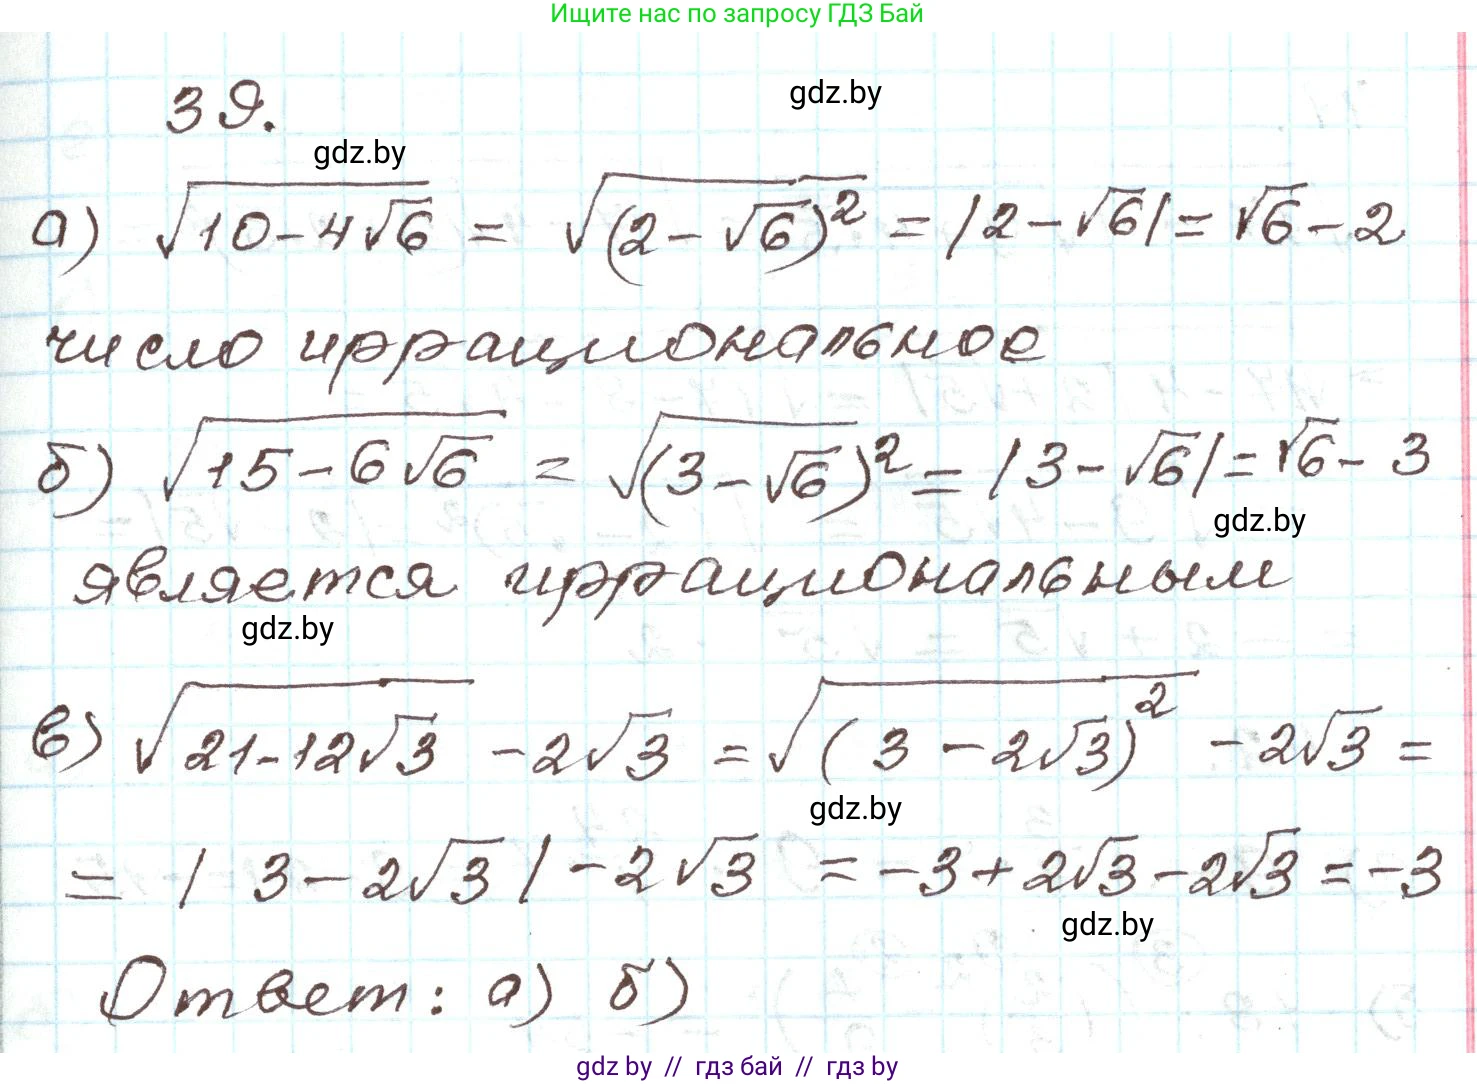 Ищите нас по запросу ГДЗ Бай
gdz.by
39.
gdz.by
а) √(10-4√6) = √((2-√6)²) = |2-√6| = √6-2
число иррациональное
б) √(15-6√6) = √((3-√6)²) = |3-√6| = √6-3
gdz.by
является иррациональным
gdz.by
в) √(21-12√3) -2√3 = √((3-2√3)²) -2√3 =
gdz.by
= |3-2√3| -2√3 = -3+2√3-2√3 = -3
gdz.by
Ответ: а) б)
gdz.by // гдз бай // гдз by